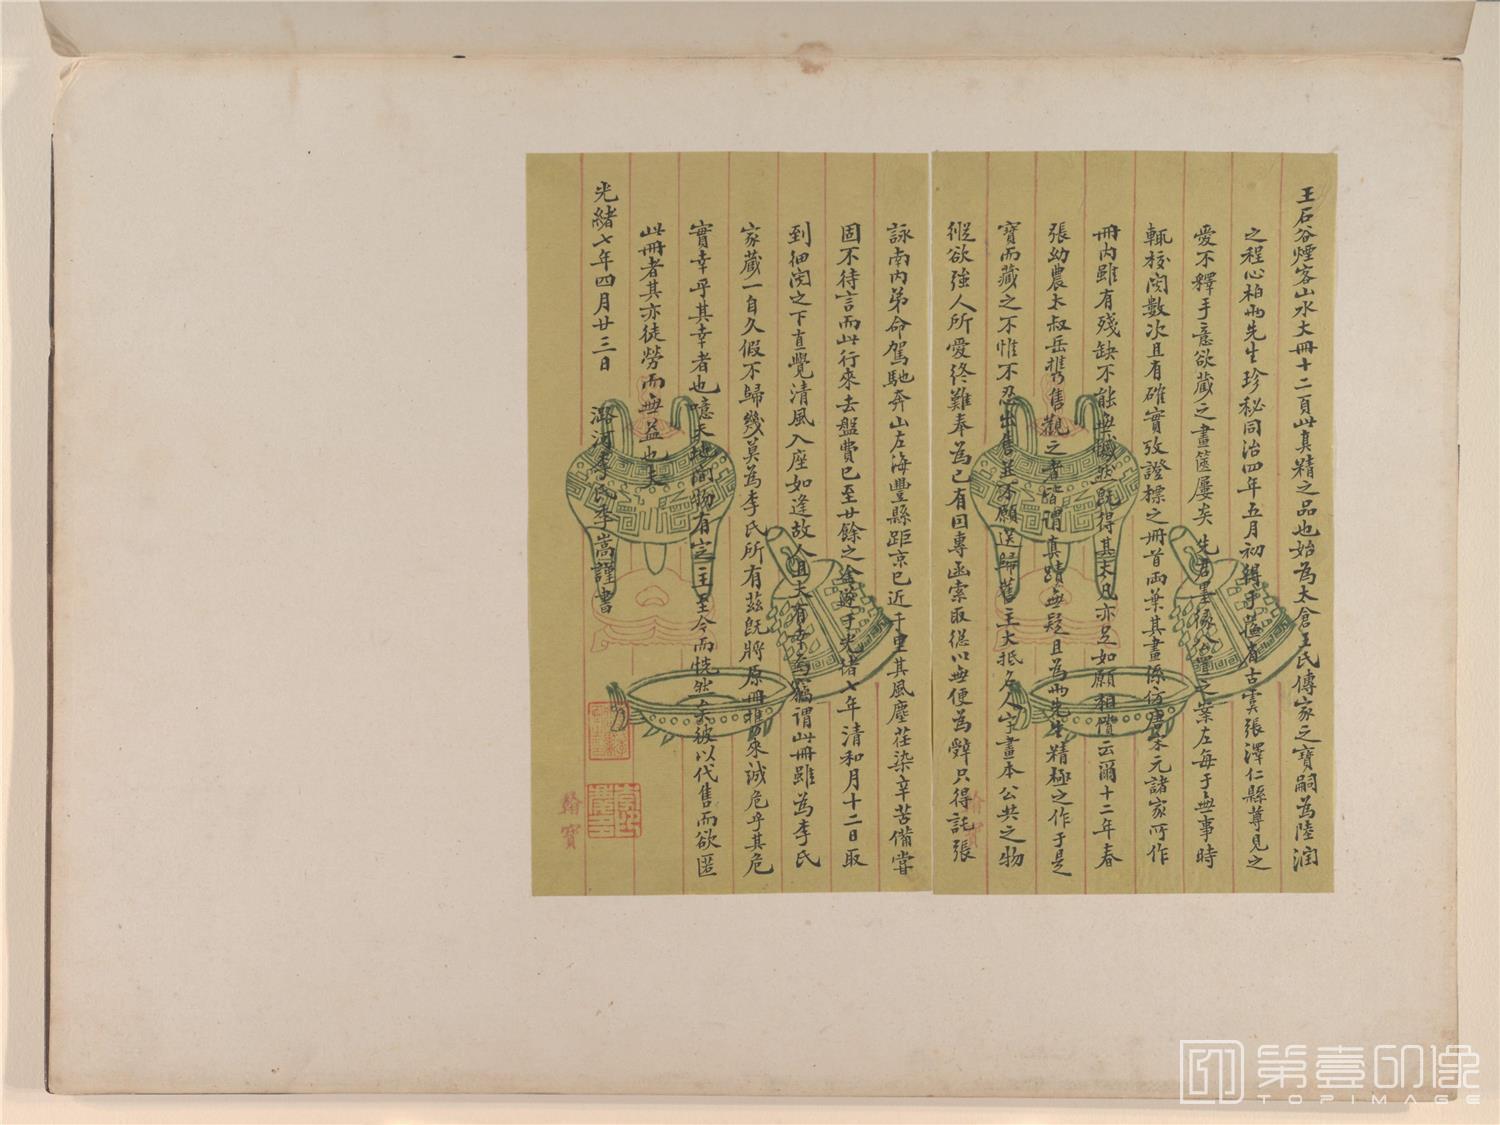 王石谷煙客山水大冊十二頁此真精之品也始為太倉王氏傳家之寶嗣為陸潤
之程心柏兩先生珍秘同治四年五月初得于蘇省古雲張澤仁縣尊見之
愛不釋手意欲藏之畫篋屢矣先君墨緣公置之案左每于無事時
輒校閱數次且有確實攷證標之冊首兩葉其畫係仿唐宋元諸家所作
冊內雖有殘缺不能無憾然既得其大凡亦足如願相償云爾十二年春
張幼農太叔岳攜售觀之者皆謂真蹟無疑且為兩先生精極之作于是
寶而藏之不惟不忍出售並不願送歸舊主大抵名人字畫本公共之物
縱欲強人所愛終難奉為己有因專函索取從以無便為辭只得託張
詠南內弟命駕馳奔山左海豐縣距京已近千里其風塵荏染辛苦備嘗
固不待言而此行來去盤費已至廿餘之途遂于光緒七年清和月十二日取
到細閱之下直覺清風入座如逢故人且大有幸為竊謂此冊雖為李氏
家藏一自久假不歸幾莫為李氏所有茲既將原冊攜來誠危乎其危
實幸乎其幸者也噫天地間物有定主至今而恍然矣彼以代售而欲匿
此冊者其亦徒勞而無益也夫
光緒七年四月廿三日 潞河李氏季嵩謹書
翰寶
翰寶
第壹印像
TOPIMAGE